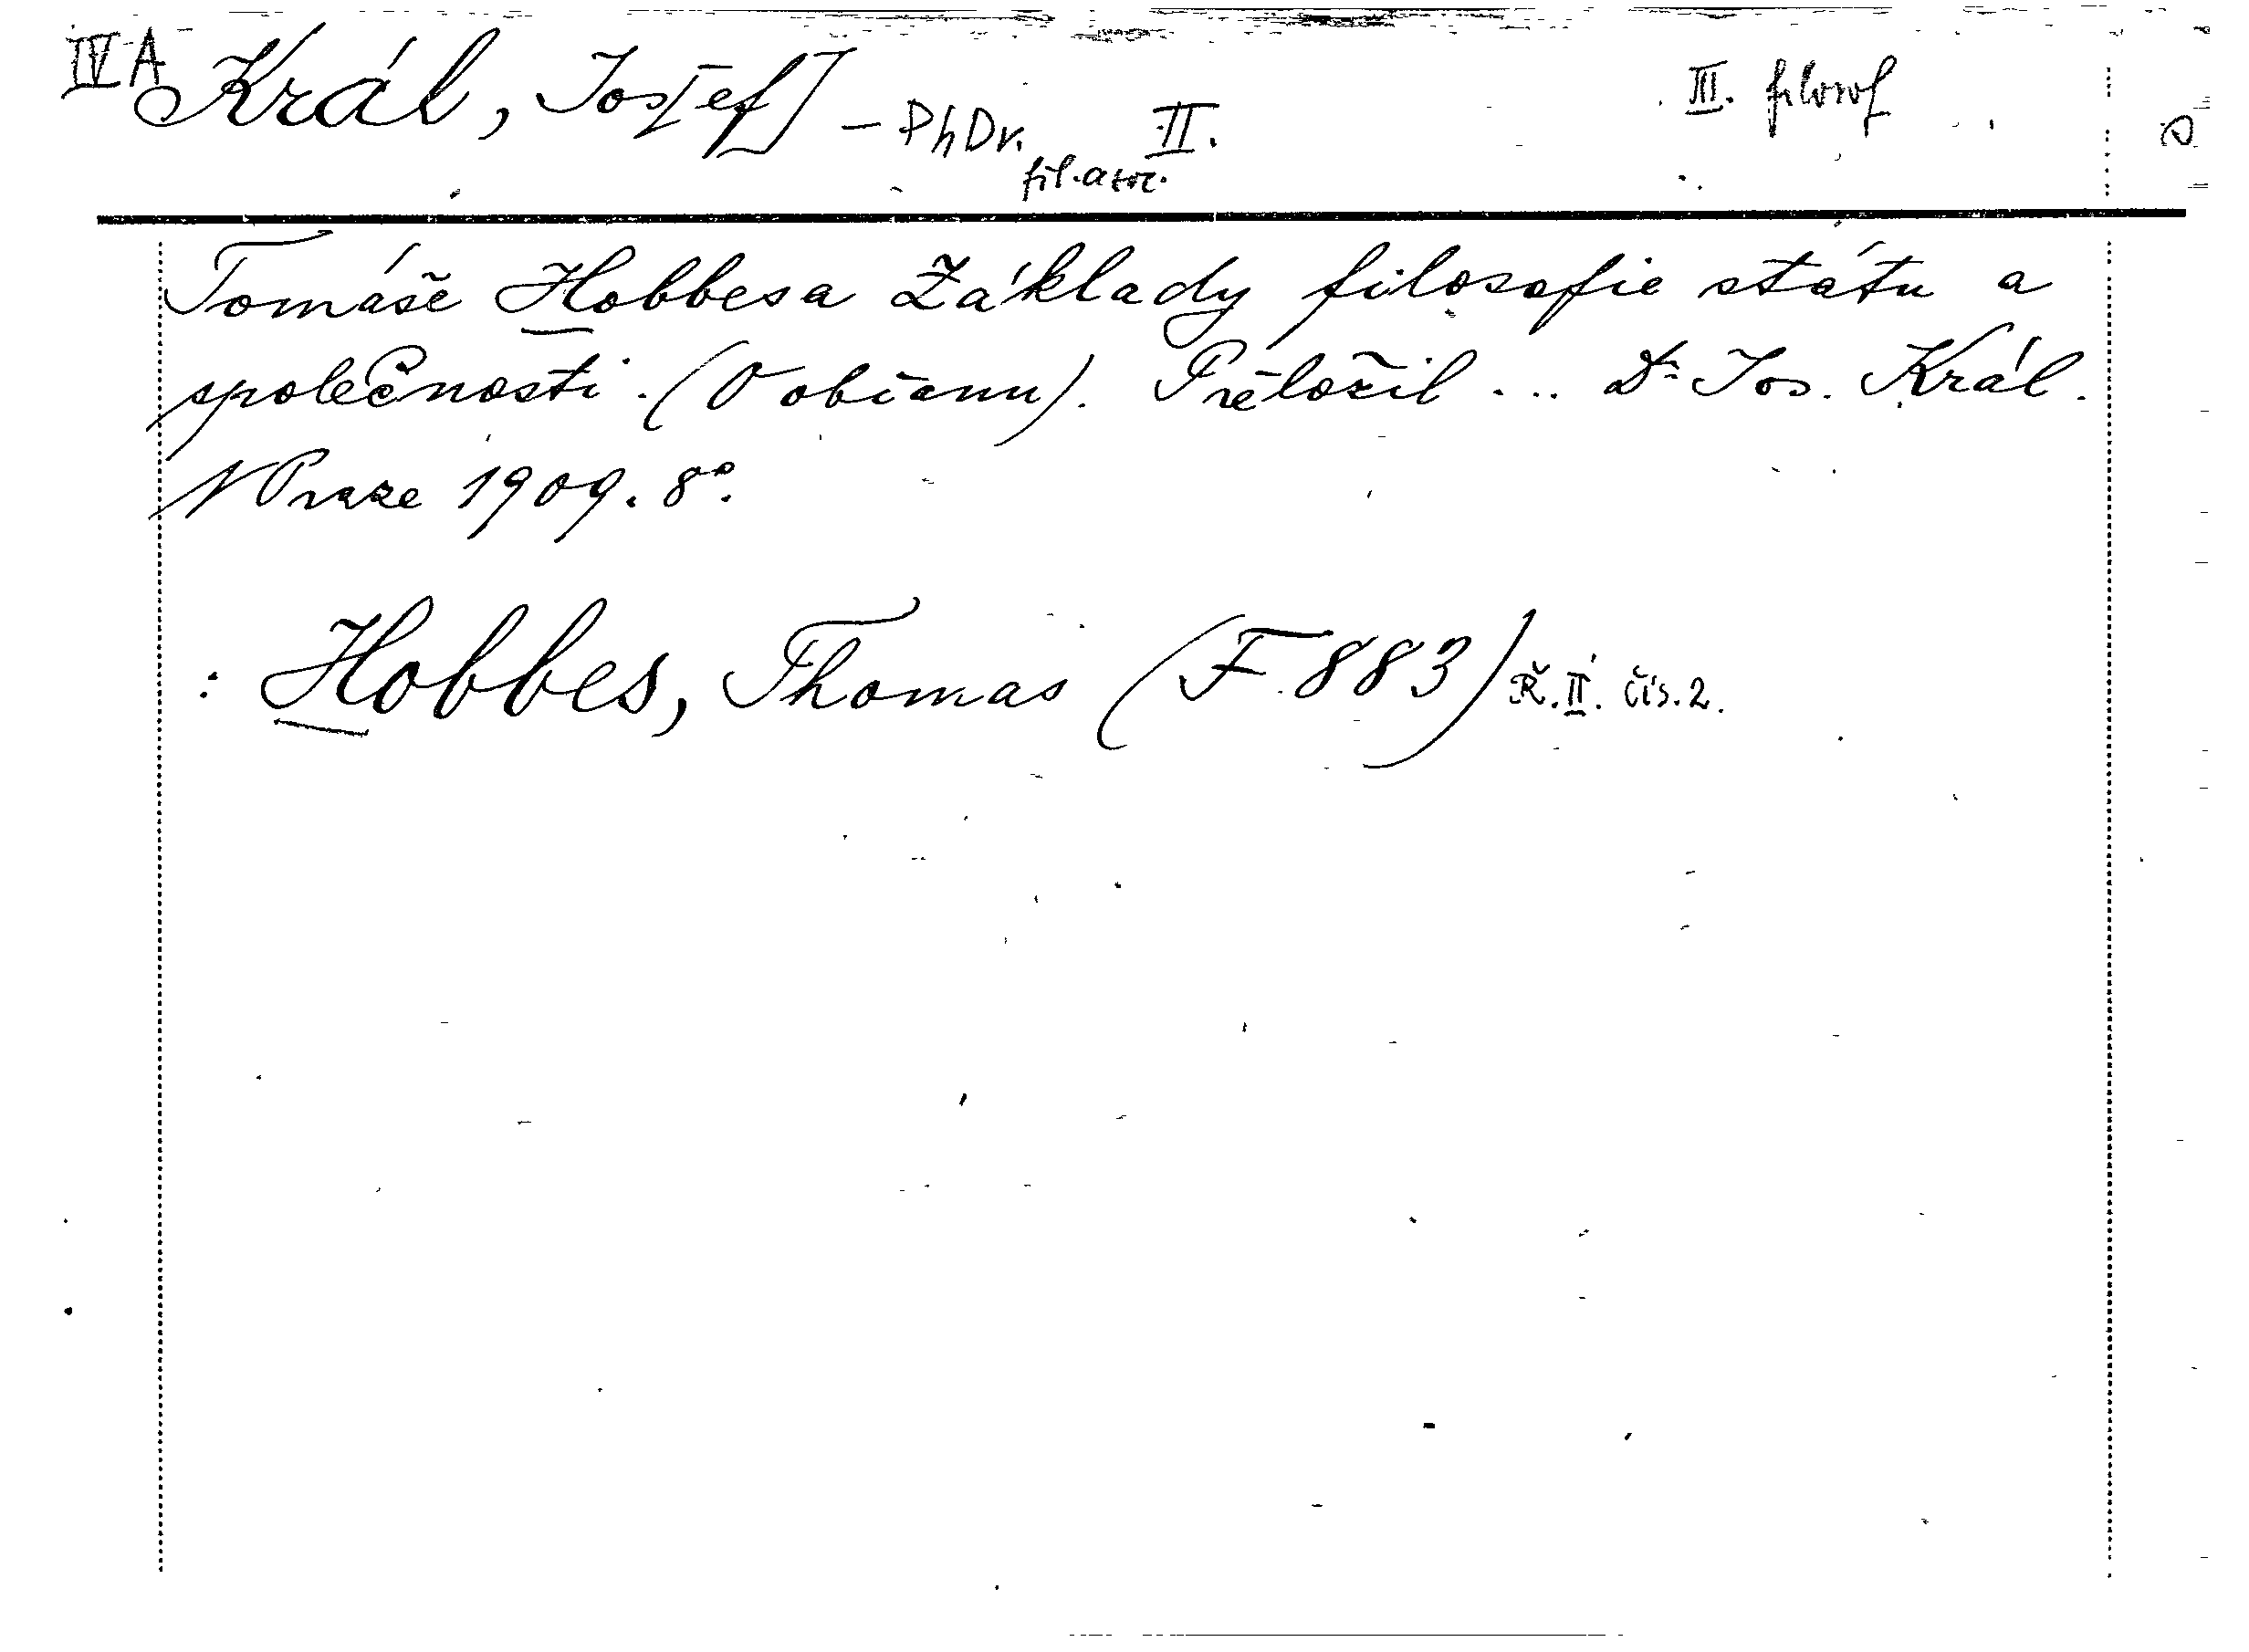 IV A Král, Jos[ef] – PhDr. II. III. filosof
fil. a soc.
Tomáše Hobbesa Základy filosofie státu a
společnosti. (O občanu). Přeložil ... Dr Jos. Král.
V Praze 1909. 8°.
: Hobbes, Thomas (F 883) Ř. II. čís. 2.